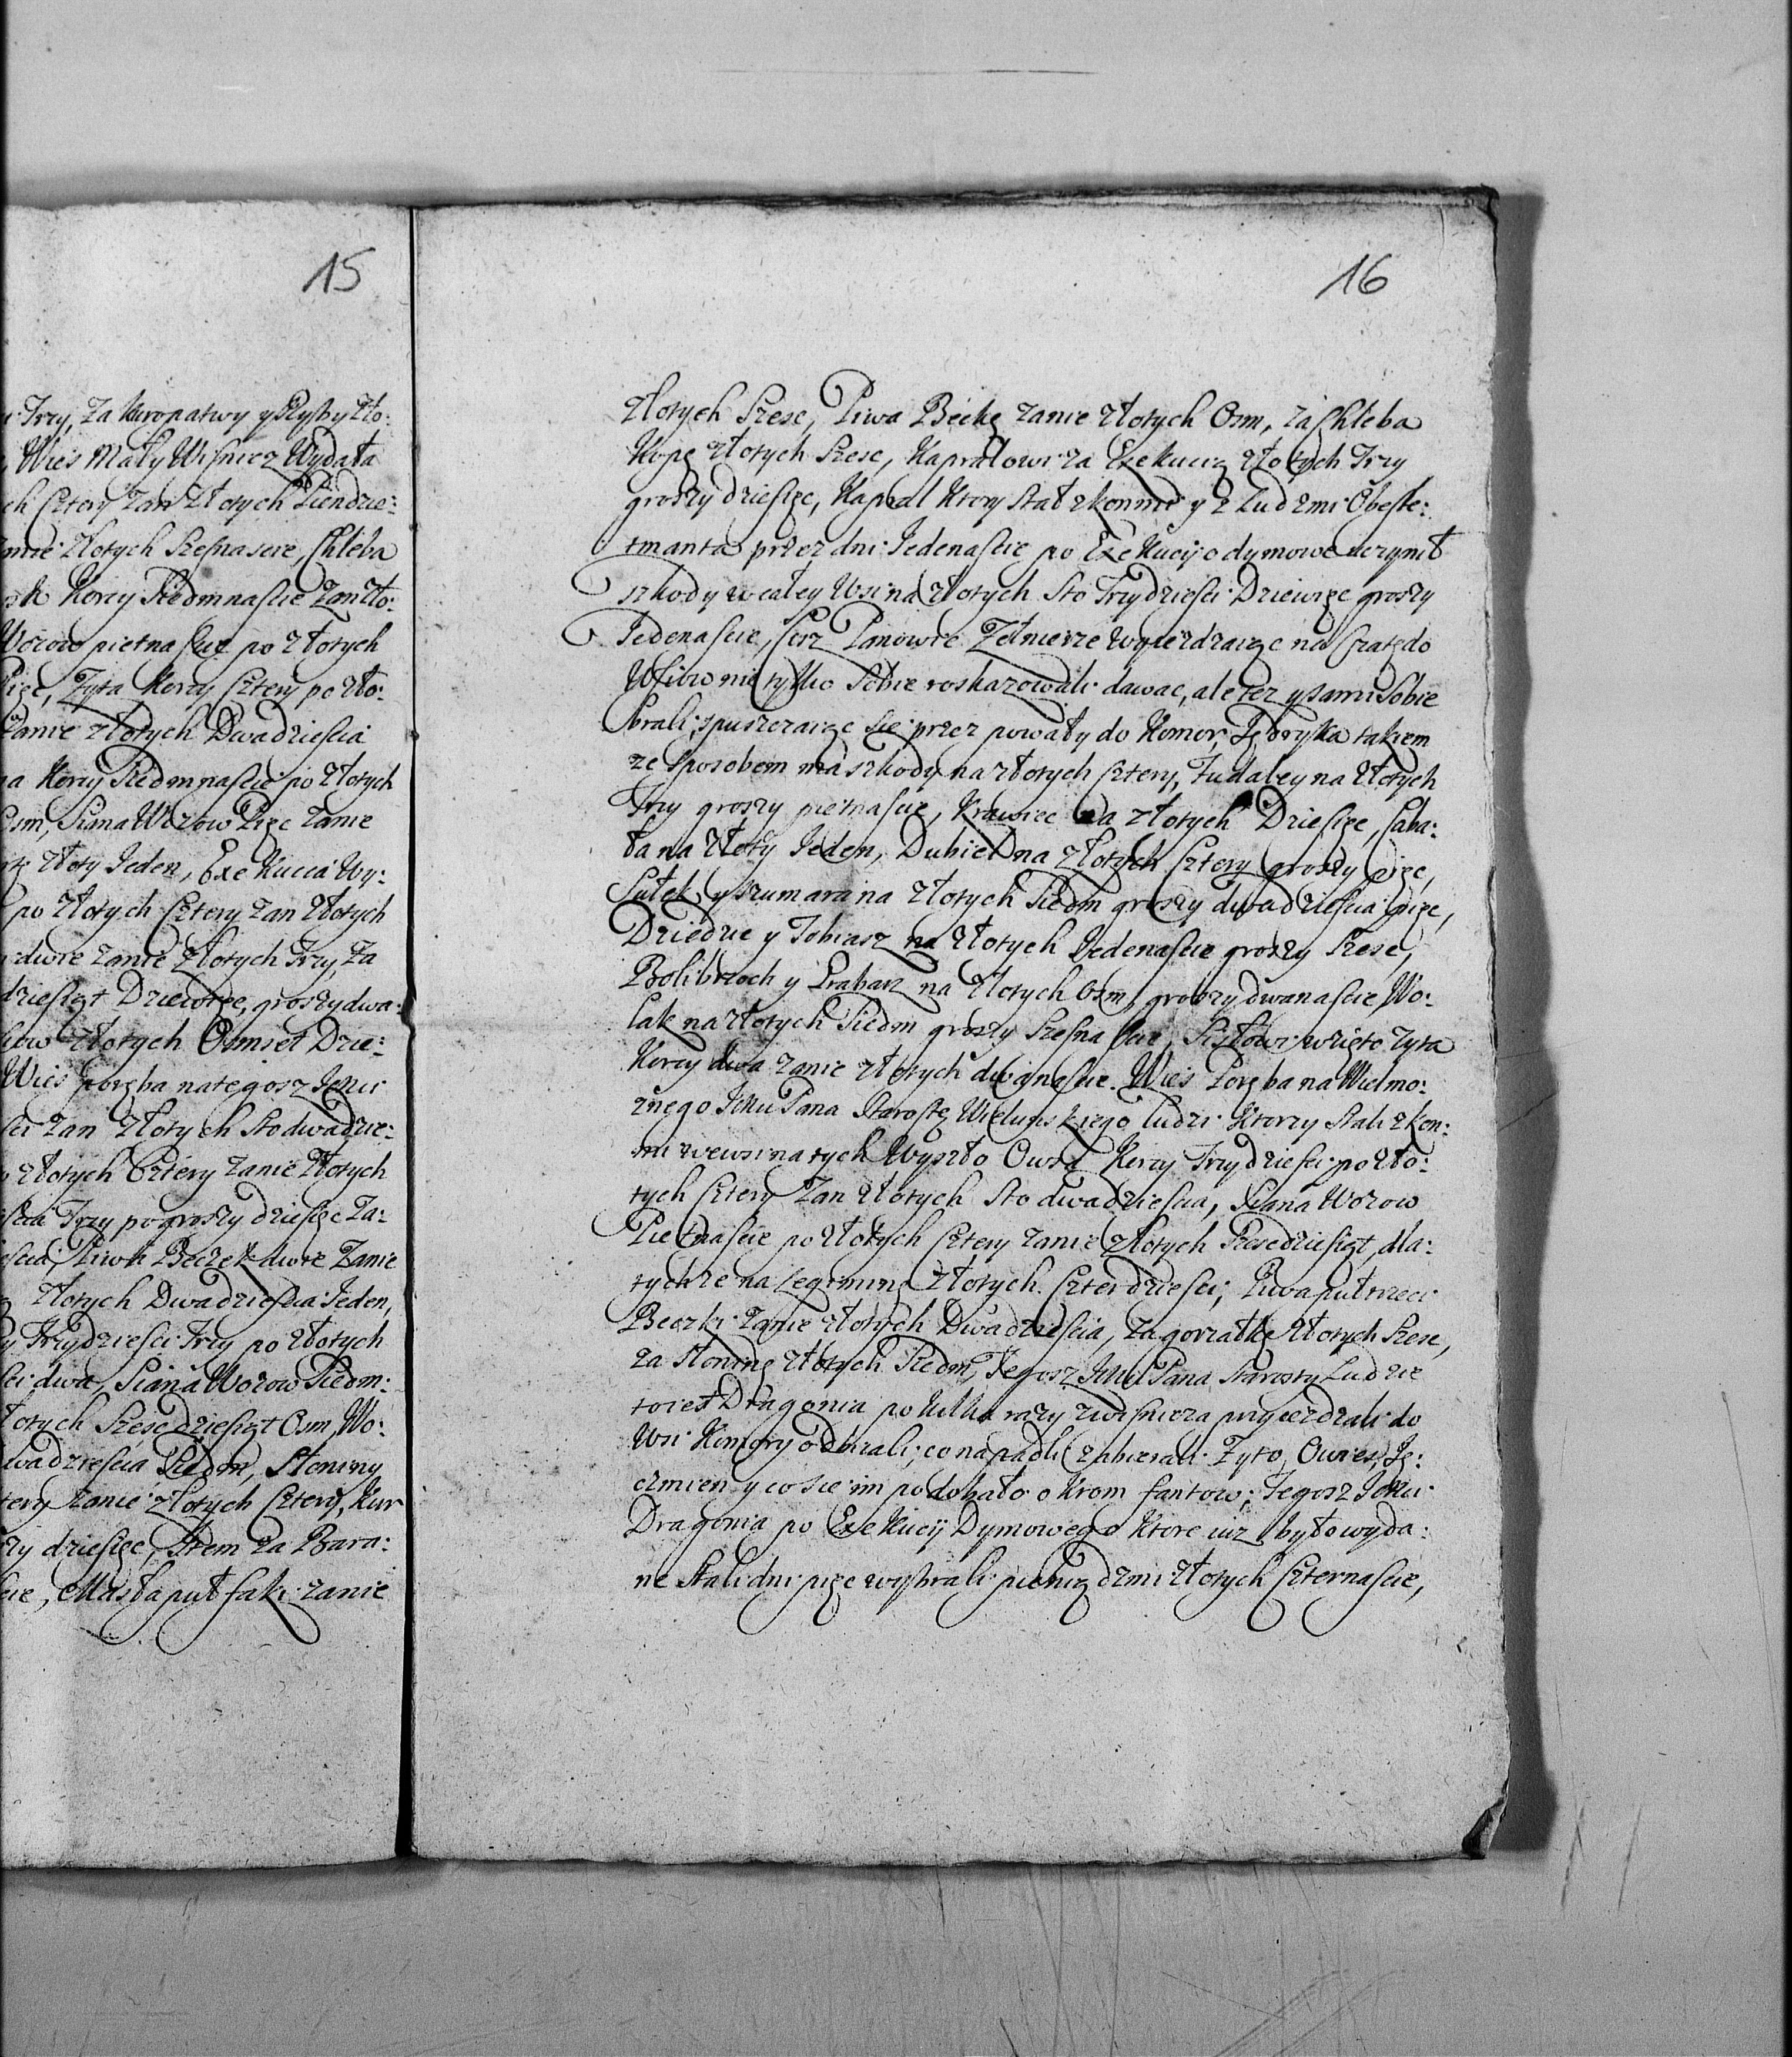 15
i Trzy, Za kuropatwy y Ryby Zło:
Wies Mały Wisnicz Wydała
ch Cztery Zan Złotych Siendzie:
Złotych Szesnascie, Chleba
Korcy Siedmnascie Zan Zło:
Wozow pietnascie po złotych
Pięc, Zyta Korcy Cztery po Zło:
Zanie złotych Dwadziescia
na Korcy Siedmnascie po złotych
Osm, Siana Wozow Pięc Zanie
Złoty Jeden, Exekucia Wy:
po złotych Cztery Zan Złotych
dwie zanie Złotych Trzy, Za
dziesiąt Dziewięc, groszy dwa:
złotych Osmset Dzie:
Wies poręba na tegosz Jemci
sci Zan Złotych Sto dwadzie:
złotych Cztery Zanie Złotych
Trzy po groszy dziesięc Za:
Piwa Beczek dwie Zanie
Złotych Dwadziescia Jeden,
Trzydziesci Trzy po złotych
sci dwa, Siana Wozow Siedm:
łotych Szescdziesiąt Osm, Wo:
wadziescia Siedm, Słoniny
tery Zanie złotych Cztery, Kur
szy dziesięc, Item za Bara:
scie, Masła puł faki zanie
16
złotych Szesc, Piwa Beckę zanie złotych Osm, za Chleba
Kopę złotych Szesc, Kapralowi za Exekucią złotych Trzy
groszy dziesięc, Kapral Ktory stał zkonmi y z Ludzmi Obeste:
tmanta przez dni Jedenascie po Exekucij o dymowe uczynił
szkody w całey Wsi na złotych Sto Trzydziesci Dziewięc groszy
Jedenascie, Cisz Panowie Zołnierze wyiezdzaiąc na Czatę do
Wsiow nietylko Sobie roskazowali dawac, ale tez y sami Sobie
brali, spuszczaiąc sie przez powały do Komor, Jędryka takiem
ze sposobem ma szkody na złotych Cztery, Fudaley na złotych
Trzy groszy pietnascie, Krawiec na złotych Dziesięc, Caba:
ła na złoty Jeden, Dubiel na złotych Cztery groszy pięc,
Sułek y szumara na złotych Siedm groszy dwadziescia pięc,
Dziedzic y Tobiasz na złotych Jedenascie groszy Szesc,
Bolibrzoch y Grabarz na złotych Osm groszy dwanascie, Wo:
lak na złotych Siedm groszy Szesnascie, Sisłowi wzięto zyta
Korcy dwa zanie złotych dwanascie. Wies Poręba na Wielmo:
znego Jmci Pana Starostę Wielunskiego ludzi ktorzy stali zkon:
mi wewsi na tych Wyszło Owsa Korcy Trzydziesci po zło:
tych Cztery Zan złotych Sto dwadziescia, Siana Wozow
Pietnascie po złotych Cztery zanie złotych Szescdziesiąt, dla:
tychze na legominę złotych Czterdziesci, Piwa pułtrzeci
Beczki zanie złotych Dwadziescia, za gorzałkę złotych Szesc,
za słoninę złotych Siedm, Tegosz Jmci Pana Starosty Ludzie
toiest Dragonia po kilka razy zwisnicza przyiezdzali do
Wsi Komory odbirali, co napadli zabierali Zyto, Owies, Ję:
czmien y co sie im podobało okrom fantow, Tegosz Jmci
Dragonia po Exekucij Dymowego ktore iuz było wyda:
ne Stali dni pięc wybrali pieniądzmi złotych Czternascie,